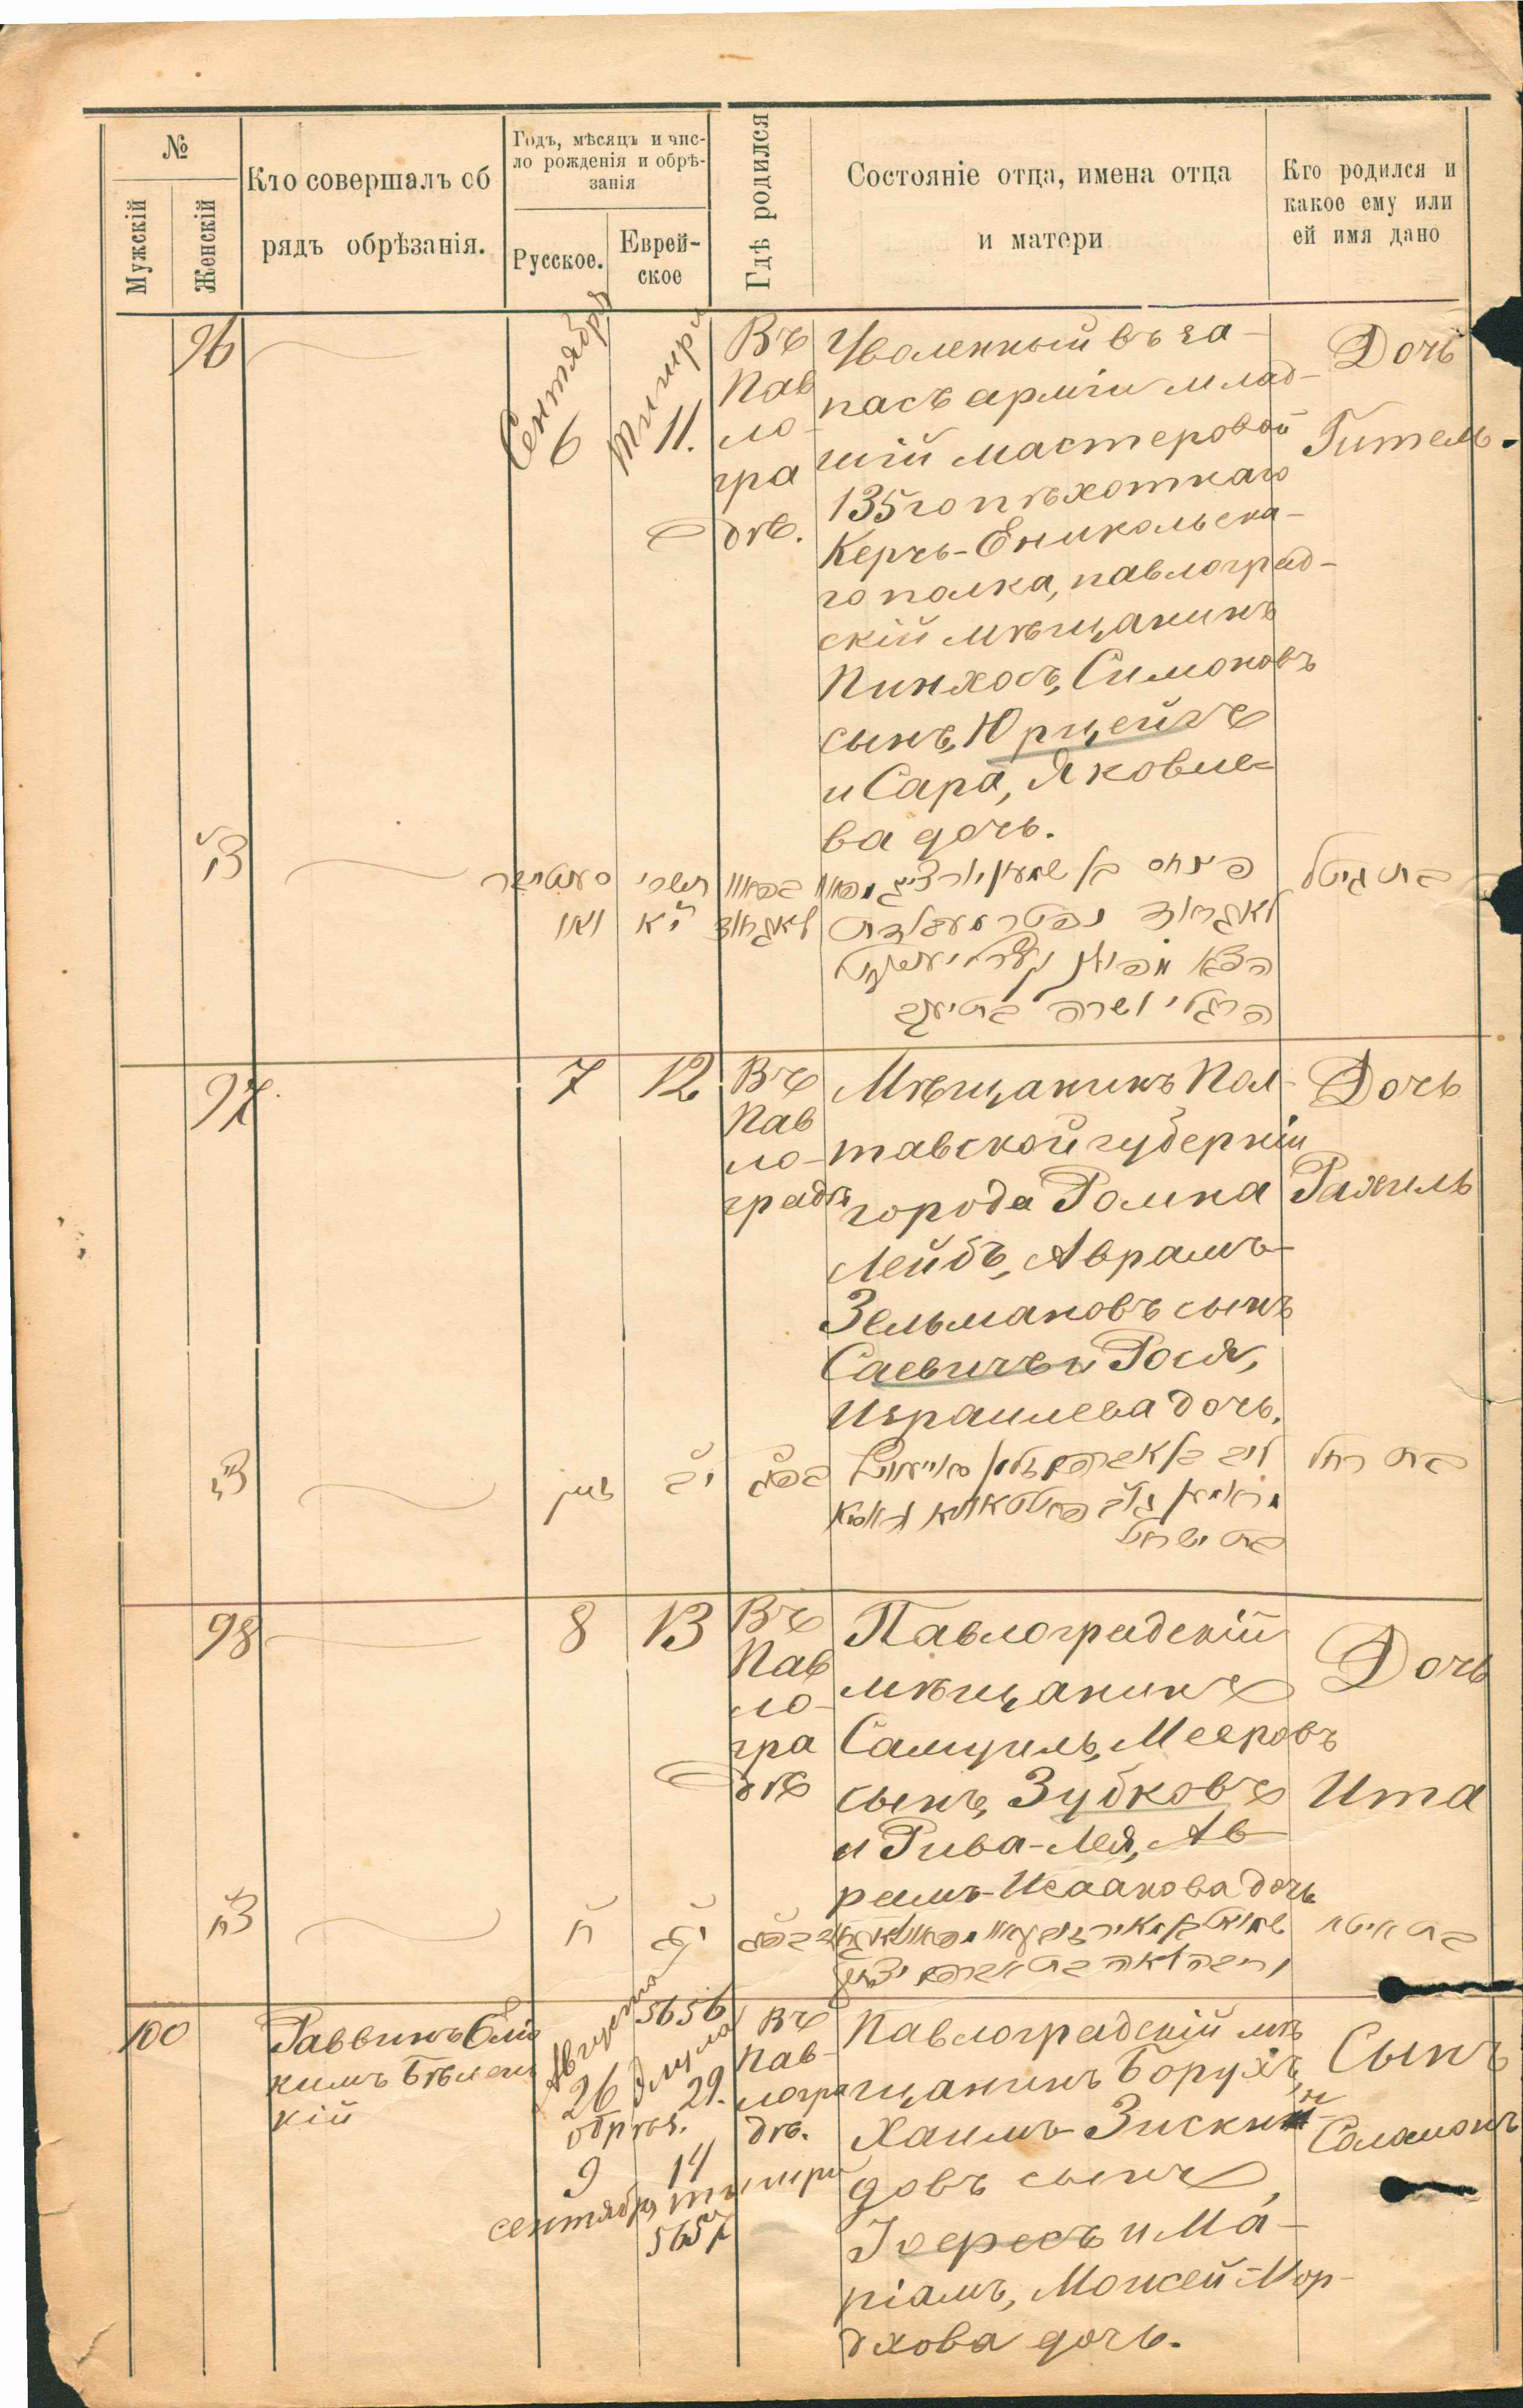 №
Мужскій
Женскій
Кто совершалъ об
рядъ обрѣзанія.
Годъ, мѣсяцъ и чис-
ло рожденія и обрѣ-
занія
Русское.
Еврей-
ское
Гдѣ родился
Состояніе отца, имена отца
и матери
Кто родился и
какое ему или
ей имя дано
96
Сентября
6
Тишри
11.
Въ
Пав
ло-
гра
дѣ.
Уволенный въ за-
пасъ арміи млад-
шій мастеровой
135го пѣхотнаго
Керчь-Еникольска-
го полка, павлоград-
скій мѣщанинъ
Пинхосъ, Симоновъ
сынъ, Юрцейгъ
и Сара, Яковле-
ва дочь.
Дочь
Гитель.
צו
סענטיאבר
תשרי
ואו
י״א
פנחס בן שמעון
בת גיטל
97
7
12
Въ
Пав
ло-
градѣ
Мѣщанинъ Пол-
тавской губерніи
города Ромна
Лейбъ, Аврамъ-
Зельмановъ сынъ
Саевичъ и Рося,
Израилева дочь.
Дочь
Рахиль
צז
זיין
י״ב
ליב בן אברהם זלמן
בת ישראל
בת רחל
98
8
13
Въ
Пав
ло-
гра
дѣ
Павлоградскій
мѣщанинъ
Самуиль, Мееровъ
сынъ, Зубковъ
и Рива-Лея, Ав-
рамъ-Исаакова дочь
Дочь
Ита
צח
ח
י״ג
וריבה לאה בת אברהם יצחק
בת איטא
100
Раввинъ Елі
кимъ Бѣленъ
кій
Августа
26
обрѣз.
9
сентября
5656
Элула
29.
14
тишри
5657
Въ
Пав-
логра
дѣ.
Павлоградскій мѣ
щанинъ Борухъ,
Хаимъ-Зискин
довъ сынъ,
Іоересъ и Ма-
ріамъ, Моисей-Мор-
дхова дочь.
Сынъ
Соломонъ